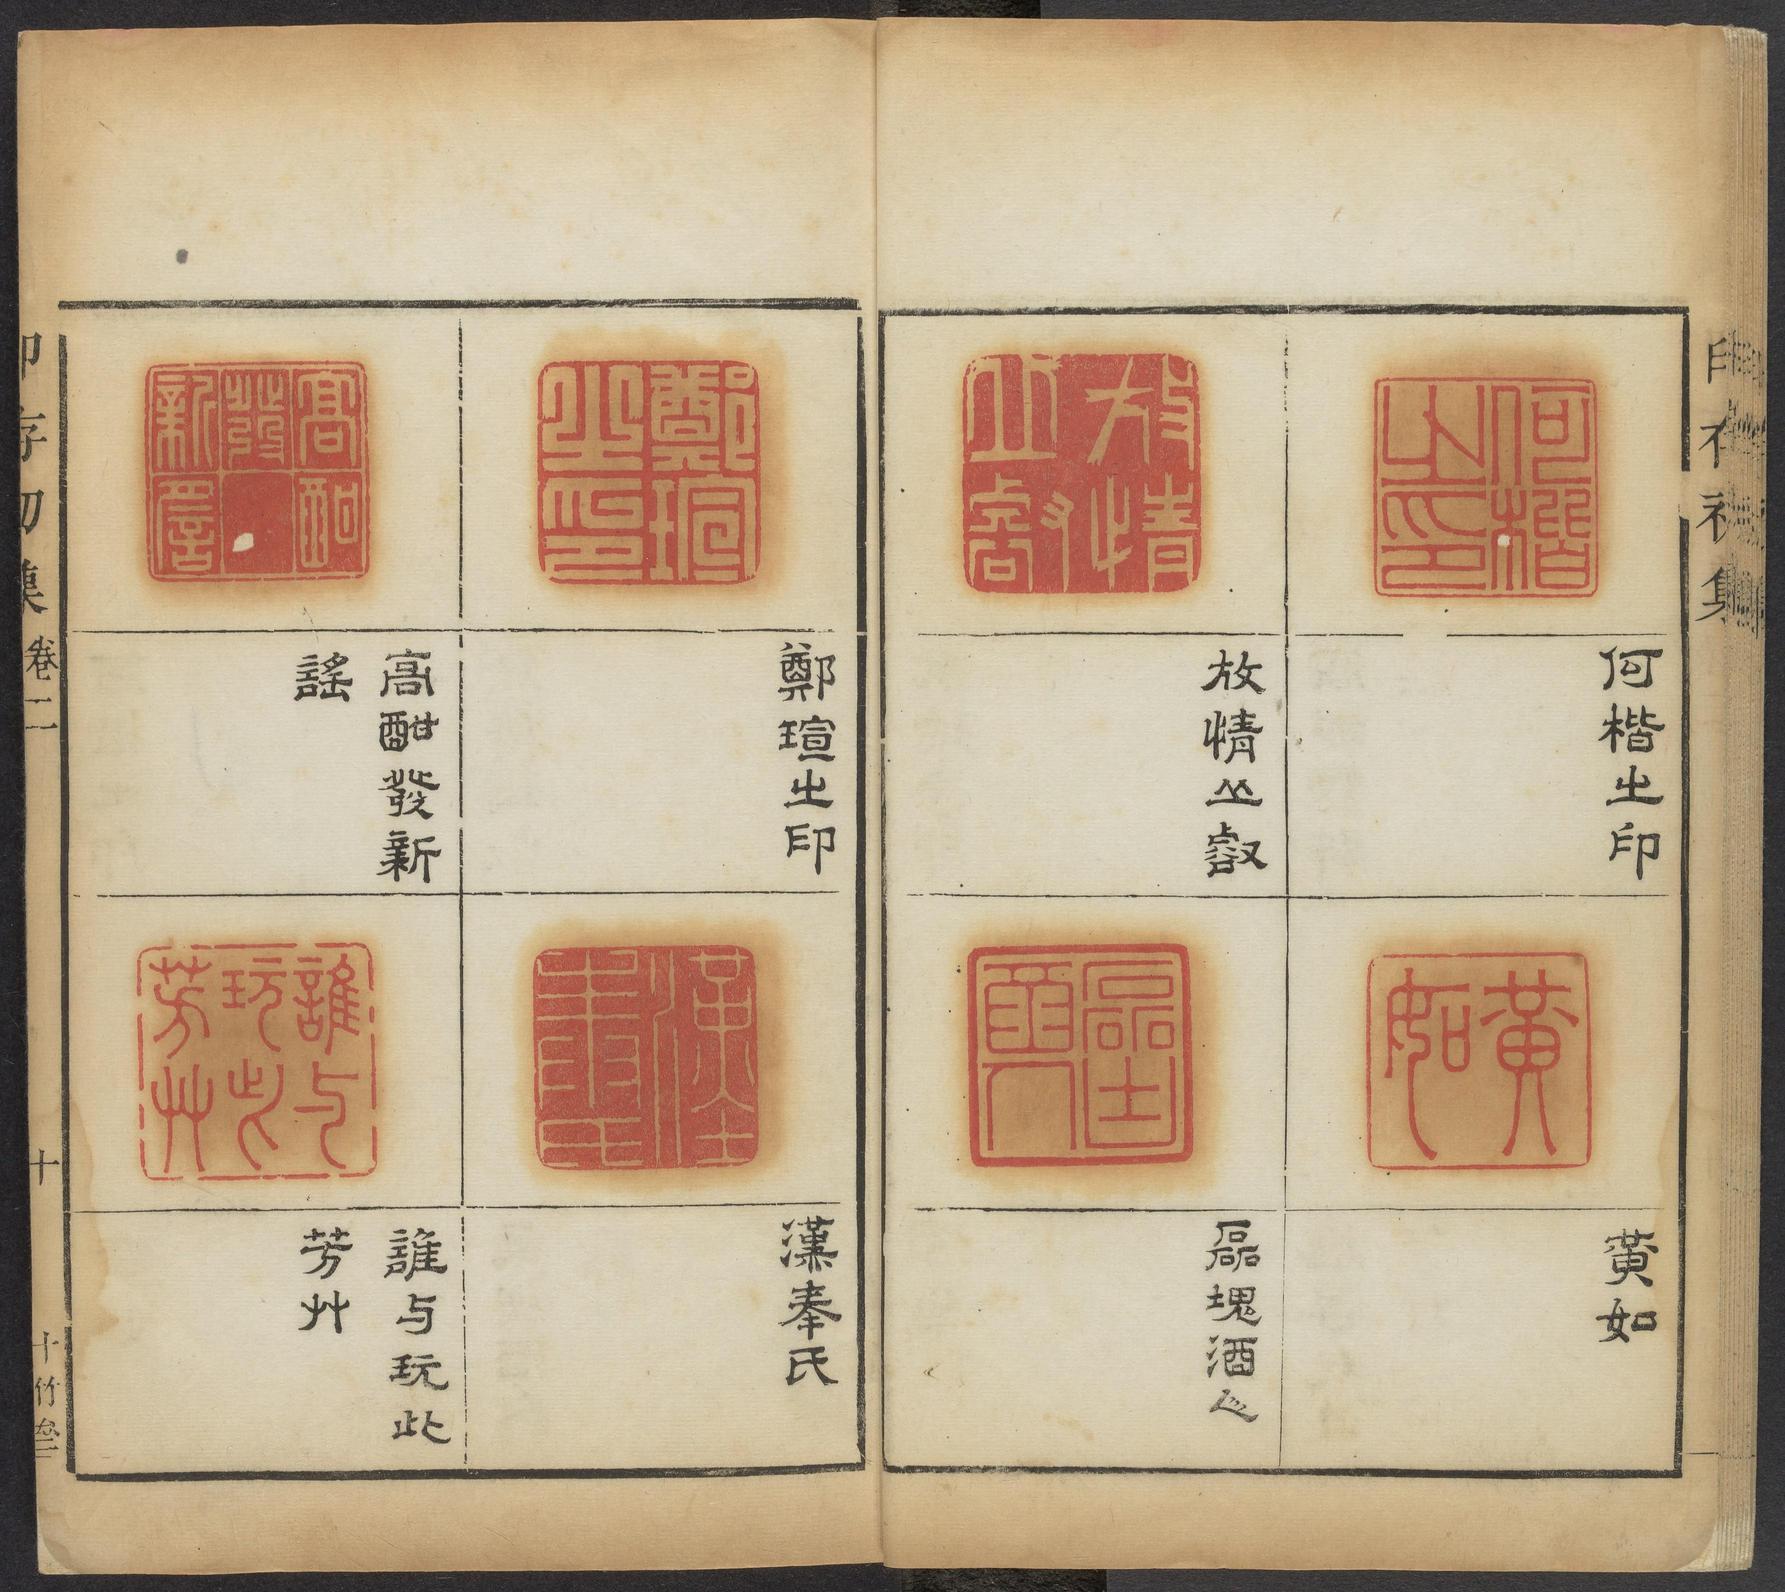 印存初集
何楷㞢印
黃如
放情丘壑
磊塊酒人
鄭瑄㞢印
漢奉氏
高酣發新
謠
誰与玩此
芳艸
印存初集
卷二
十
十竹斋